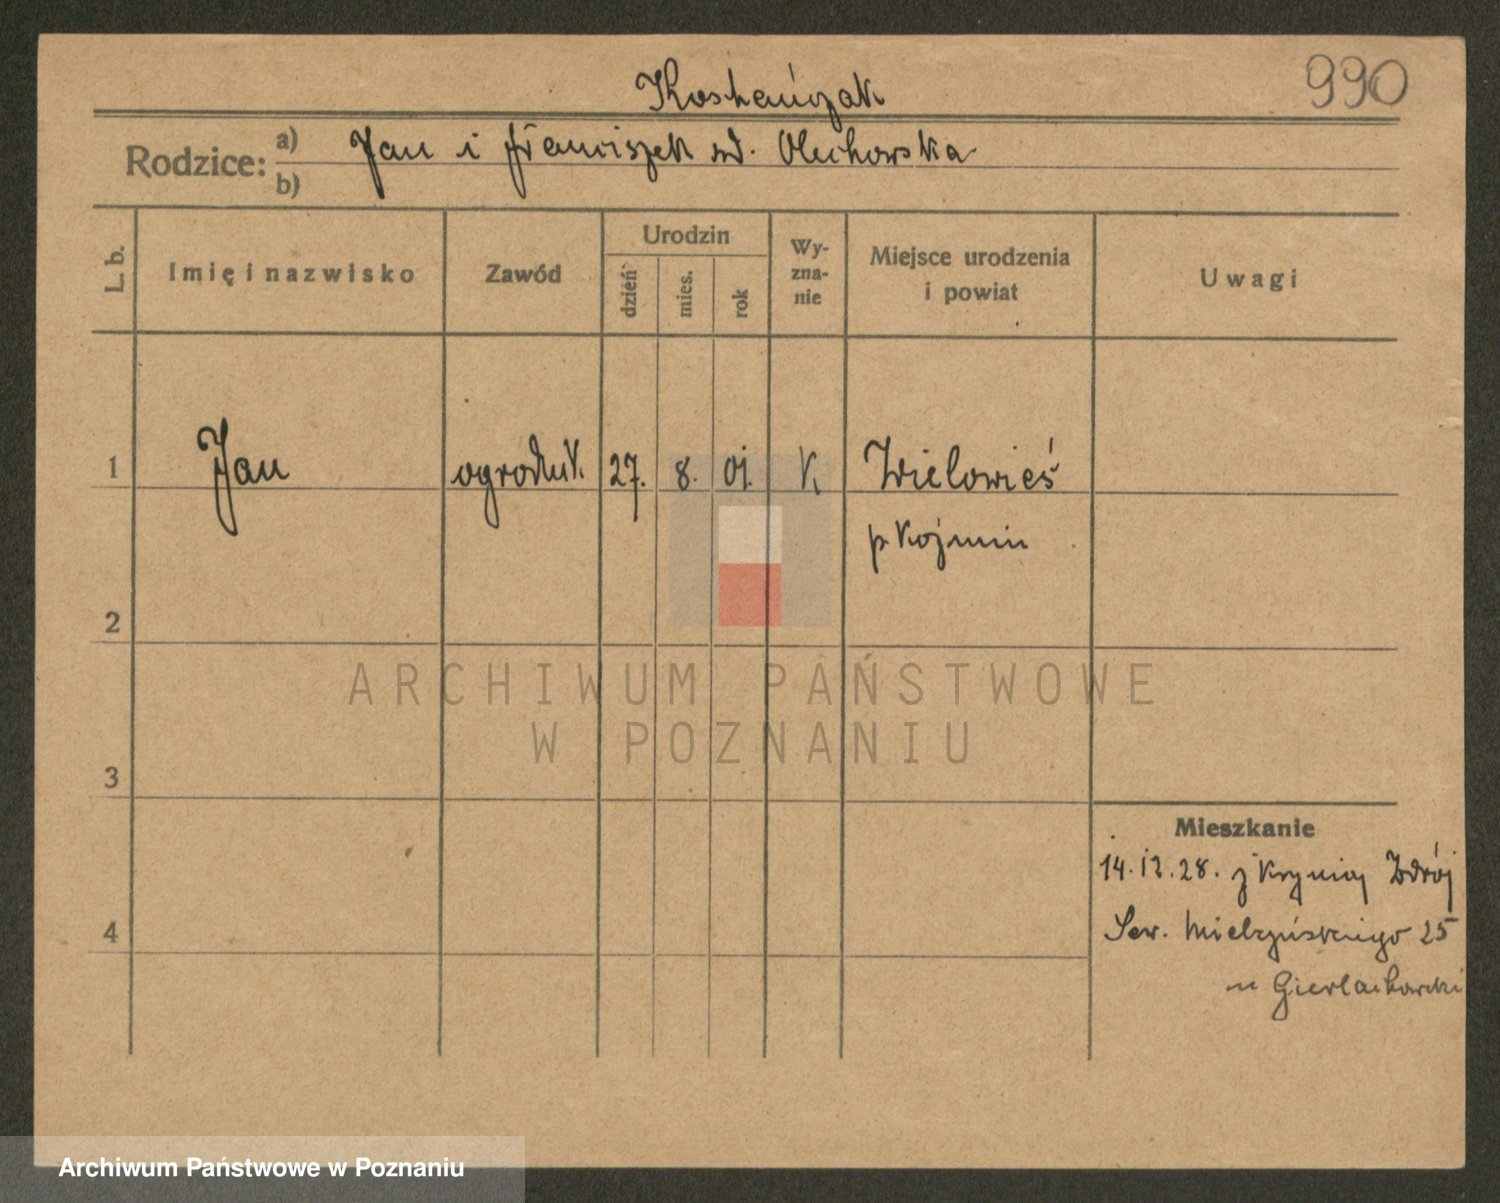 990
Kostańczak
Rodzice: a) Jan i Franciszek Olechowska
b)
L. b.
Imię i nazwisko
Zawód
Urodzin
dzień
mies.
rok
Wy-
zna-
nie
Miejsce urodzenia
i powiat
Uwagi
1 Jan ogrodnik 27. 8. 01. K. Wielowieś
p. Koźmin
2
ARCHIWUM PAŃSTWOWE
W POZNANIU
3
Mieszkanie
14.12.28. z Krynicy Zdrój
4 Sew. Mielżyńskiego 25
u Gierlachowski
Archiwum Państwowe w Poznaniu